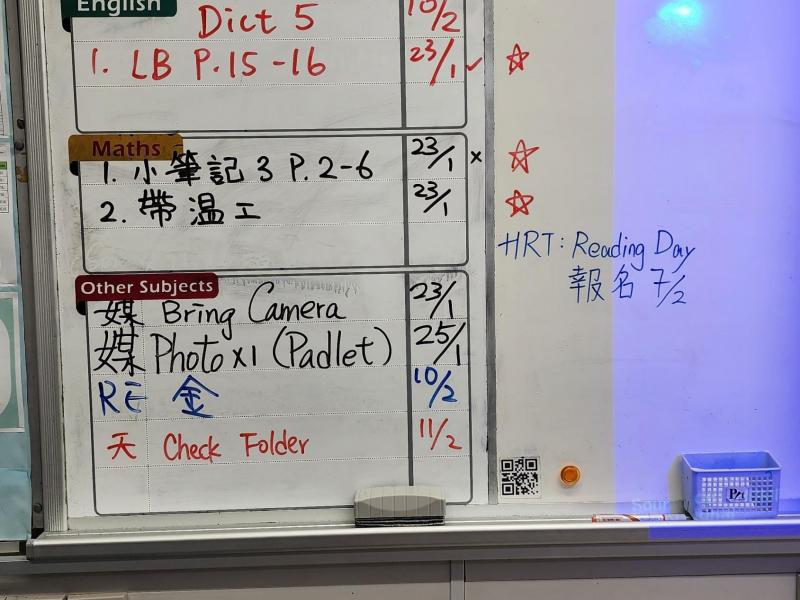 English
Dict 5 10/2
1. LB P.15-16 23/1 ✓ ☆
Maths
1. 小筆記 3 P. 2-6 23/1 × ☆
2. 帶温工 23/1 ☆
HRT: Reading Day
報名 7/2
Other Subjects
媒 Bring Camera 23/1
媒 Photo x1 (Padlet) 25/1
RE 金 10/2
天 Check Folder 11/2